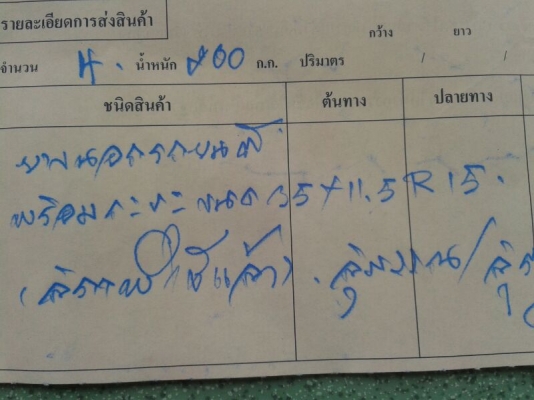 รายละเอียดการส่งสินค้า
กว้าง ยาว
จำนวน 4. น้ำหนัก 200 ก.ก. ปริมาตร / /
ชนิดสินค้า ต้นทาง ปลายทาง
ยางนอกรถยนต์
พร้อมกะทะ ขนาด 35x11.5 R 15.
(สภาพใช้แล้ว).